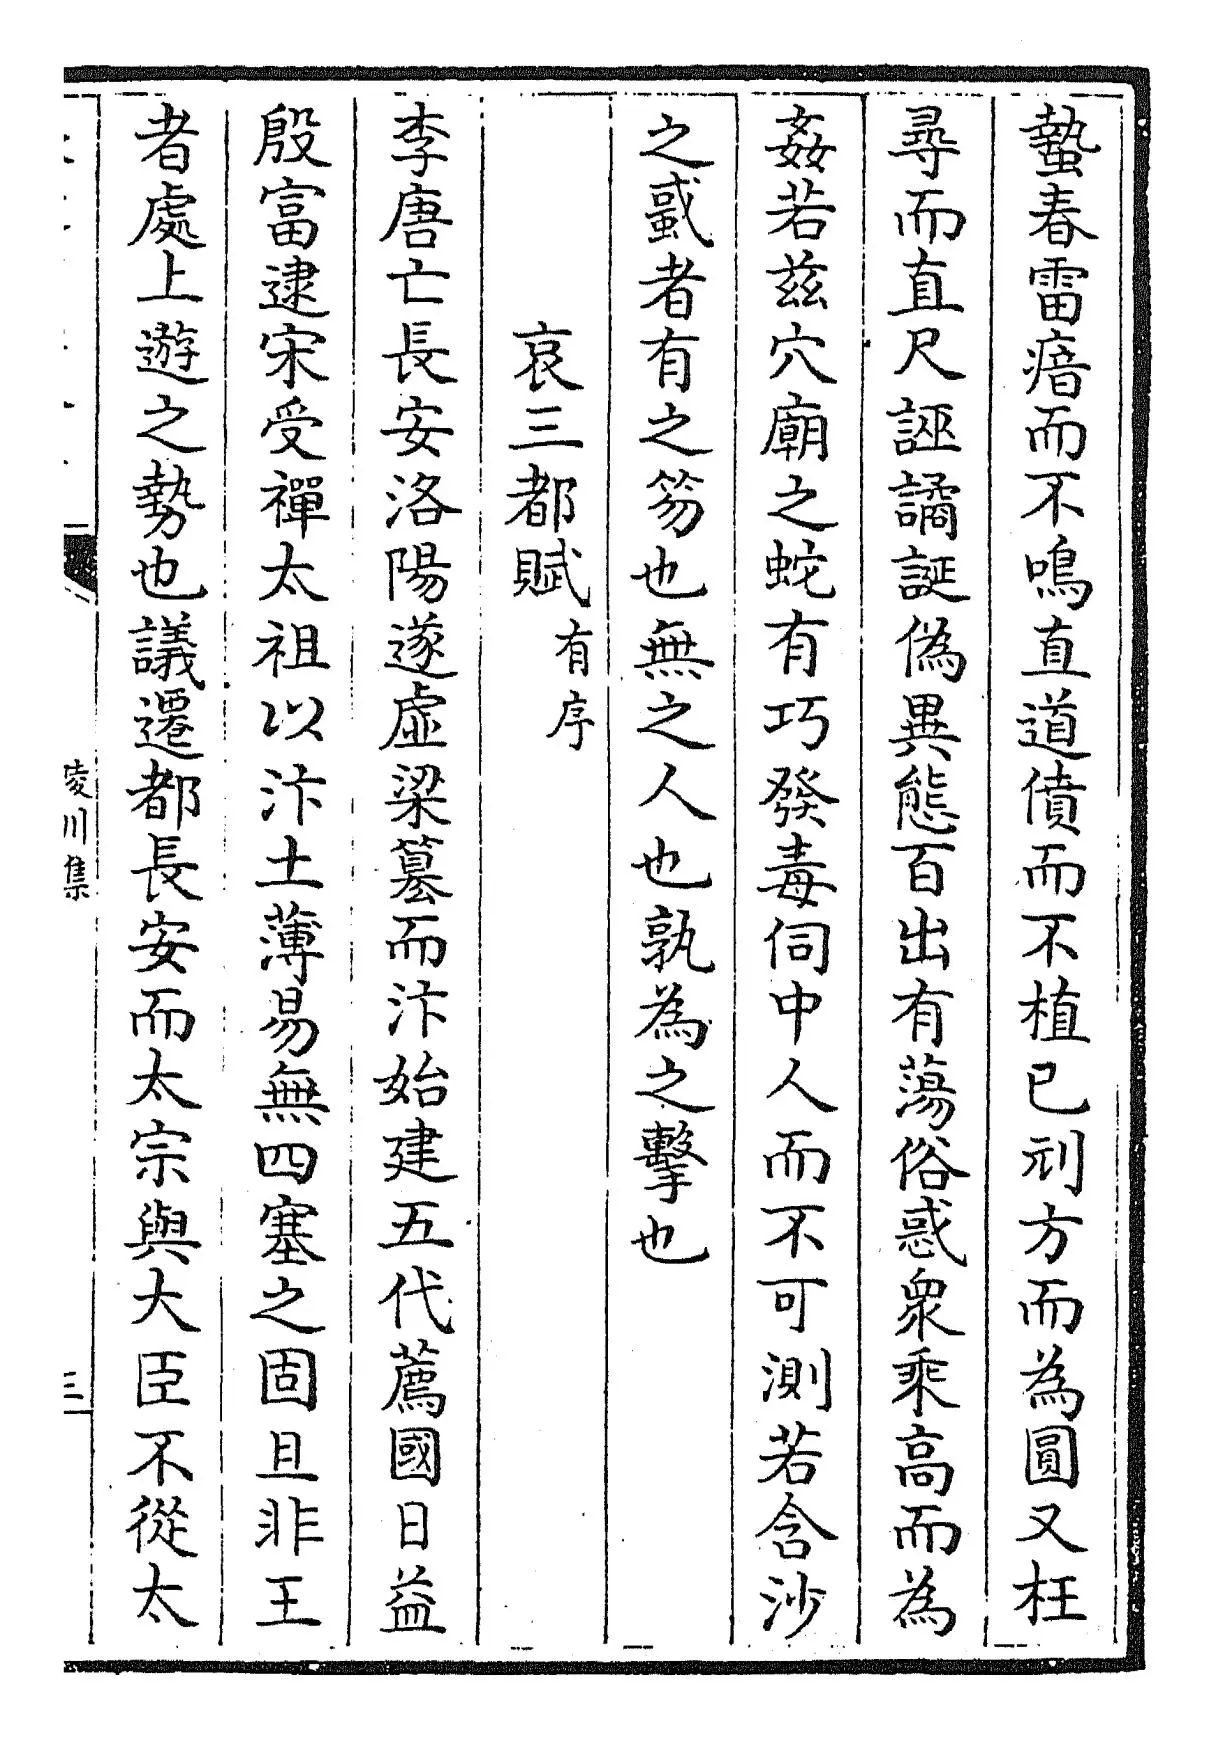 蟄春雷瘖而不鳴直道僨而不植已刓方而為圓又枉
尋而直尺誣譎誕偽異態百出有蕩俗惑衆乘高而為
姦若兹穴廟之蛇有巧發毒伺中人而不可測若含沙
之蜮者有之笏也無之人也孰為之擊也
哀三都賦有序
李唐亡長安洛陽遂虚梁簒而汴始建五代薦國日益
殷富逮宋受禪太祖以汴土薄易無四塞之固且非王
者處上遊之勢也議遷都長安而太宗與大臣不從太
陵川集
三